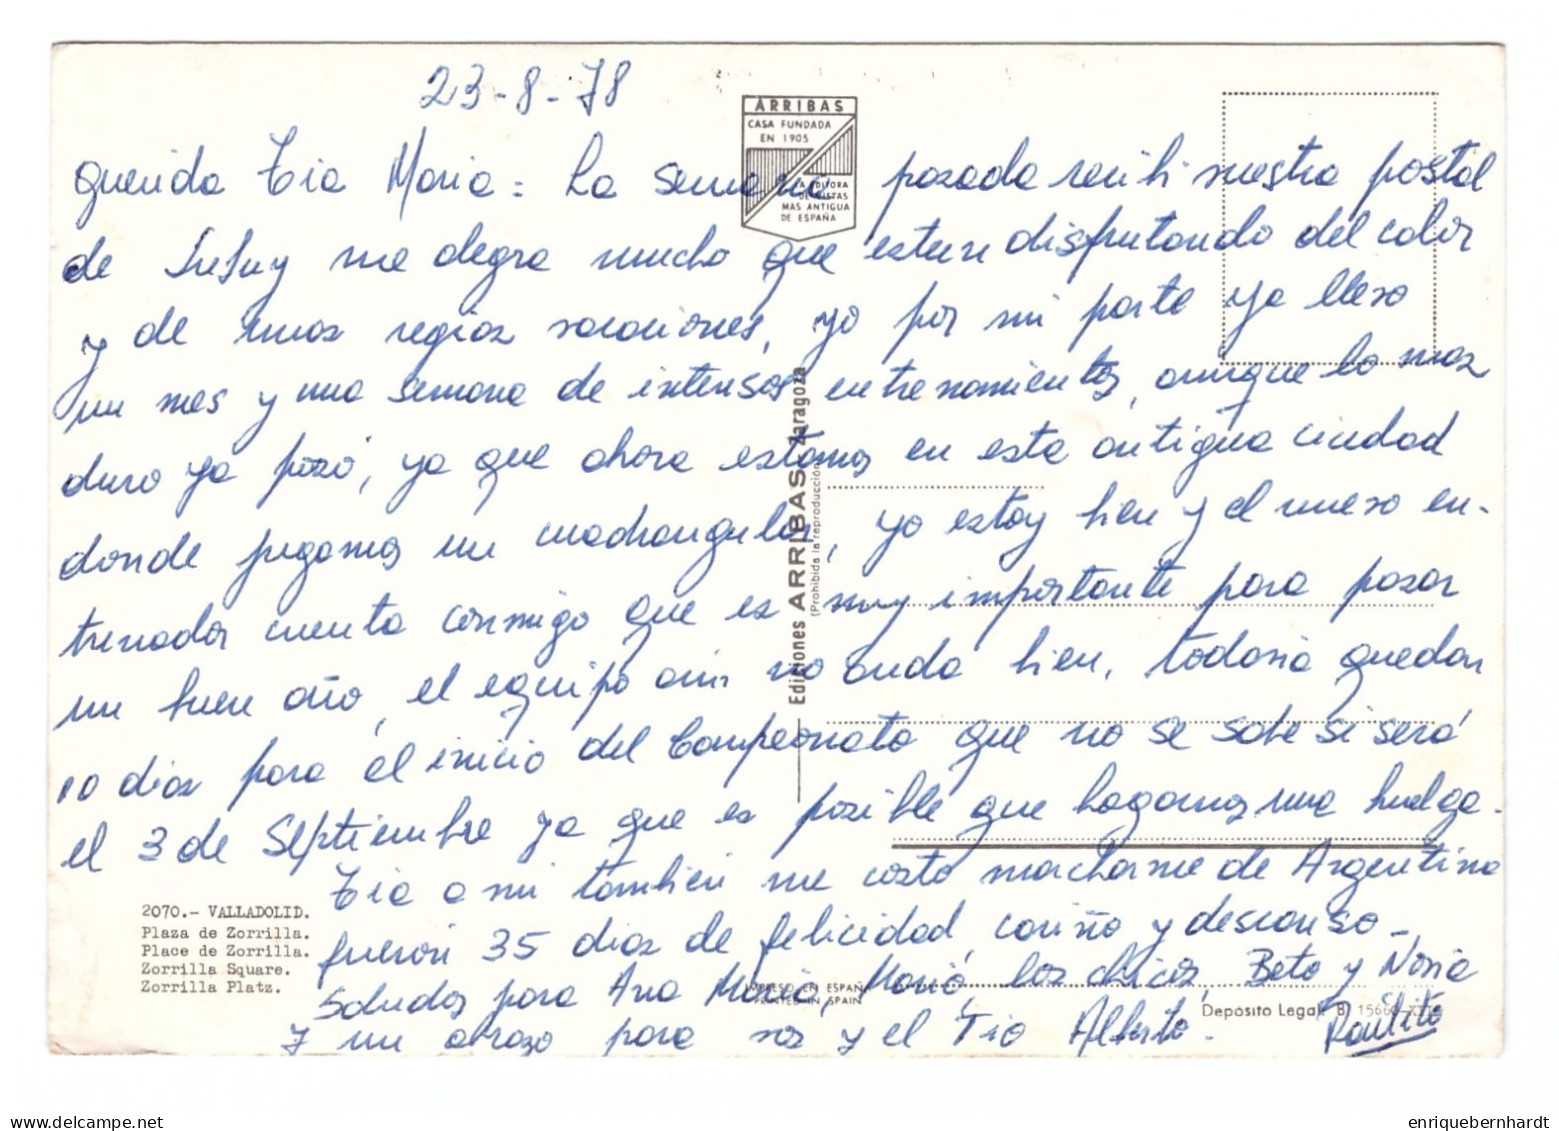 23-8-78
ARRIBAS
CASA FUNDADA
EN 1905
LA EDITORA
DE VISTAS
MAS ANTIGUA
DE ESPAÑA
Querida Tia Maria = La semana pasada recibi vuestra postal
de me alegra mucho que esten disfrutando del calor
y de unas regias vacaciones, yo por mi parte ya llevo
un mes y una semana de intensos entrenamientos, aunque lo mas
duro ya pasó, ya que ahora estamos en esta antigua ciudad
donde jugamos un cuadrangular, yo estoy bien y el nuevo en-
trenador cuenta conmigo que es muy importante para pasar
un buen año, el equipo aun no anda bien, todavia quedan
10 dias para el inicio del Campeonato que no se sabe si será
el 3 de Septiembre ya que es posible que hagamos una huelga.
Tia a mi tambien me costo marcharme de Argentina
fueron 35 dias de felicidad, cariño y descanso.
Saludos para Ana Maria, Mario, los chicos, Beto y Noria
Y un abrazo para vos y el Tio Alberto.
Raulito
Ediciones ARRIBAS Zaragoza
(Prohibida la reproducción)
2070.- VALLADOLID.
Plaza de Zorrilla.
Place de Zorrilla.
Zorrilla Square.
Zorrilla Platz.
IMPRESO EN ESPAÑA
PRINTED IN SPAIN
Depósito Legal. B. 15660
enriquebernhardt